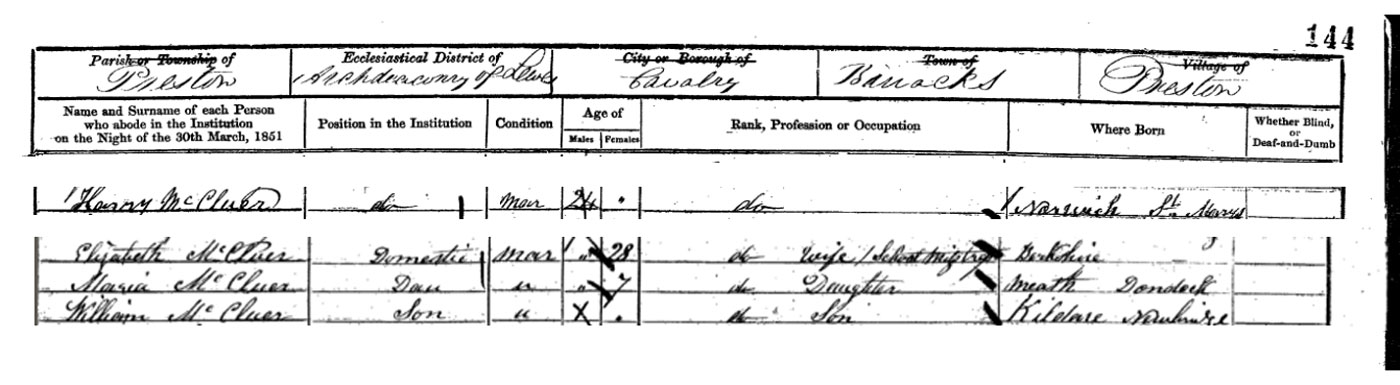 144
Parish or Township of
Preston
Ecclesiastical District of
Archdeaconry of Lewes
City or Borough of
Cavalry
Town of
Barracks
Village of
Preston
Name and Surname of each Person
who abode in the Institution
on the Night of the 30th March, 1851
Position in the Institution
Condition
Age of
Males
Females
Rank, Profession or Occupation
Where Born
Whether Blind,
or
Deaf-and-Dumb
Harry McCluer do Mar 24 do Norwich St Marys
Elizabeth McCluer Domestic Mar 28 do Wife / Berkshire
Maria McCluer Dau u 7 do Daughter Meath
William McCluer Son u do Son Kildare